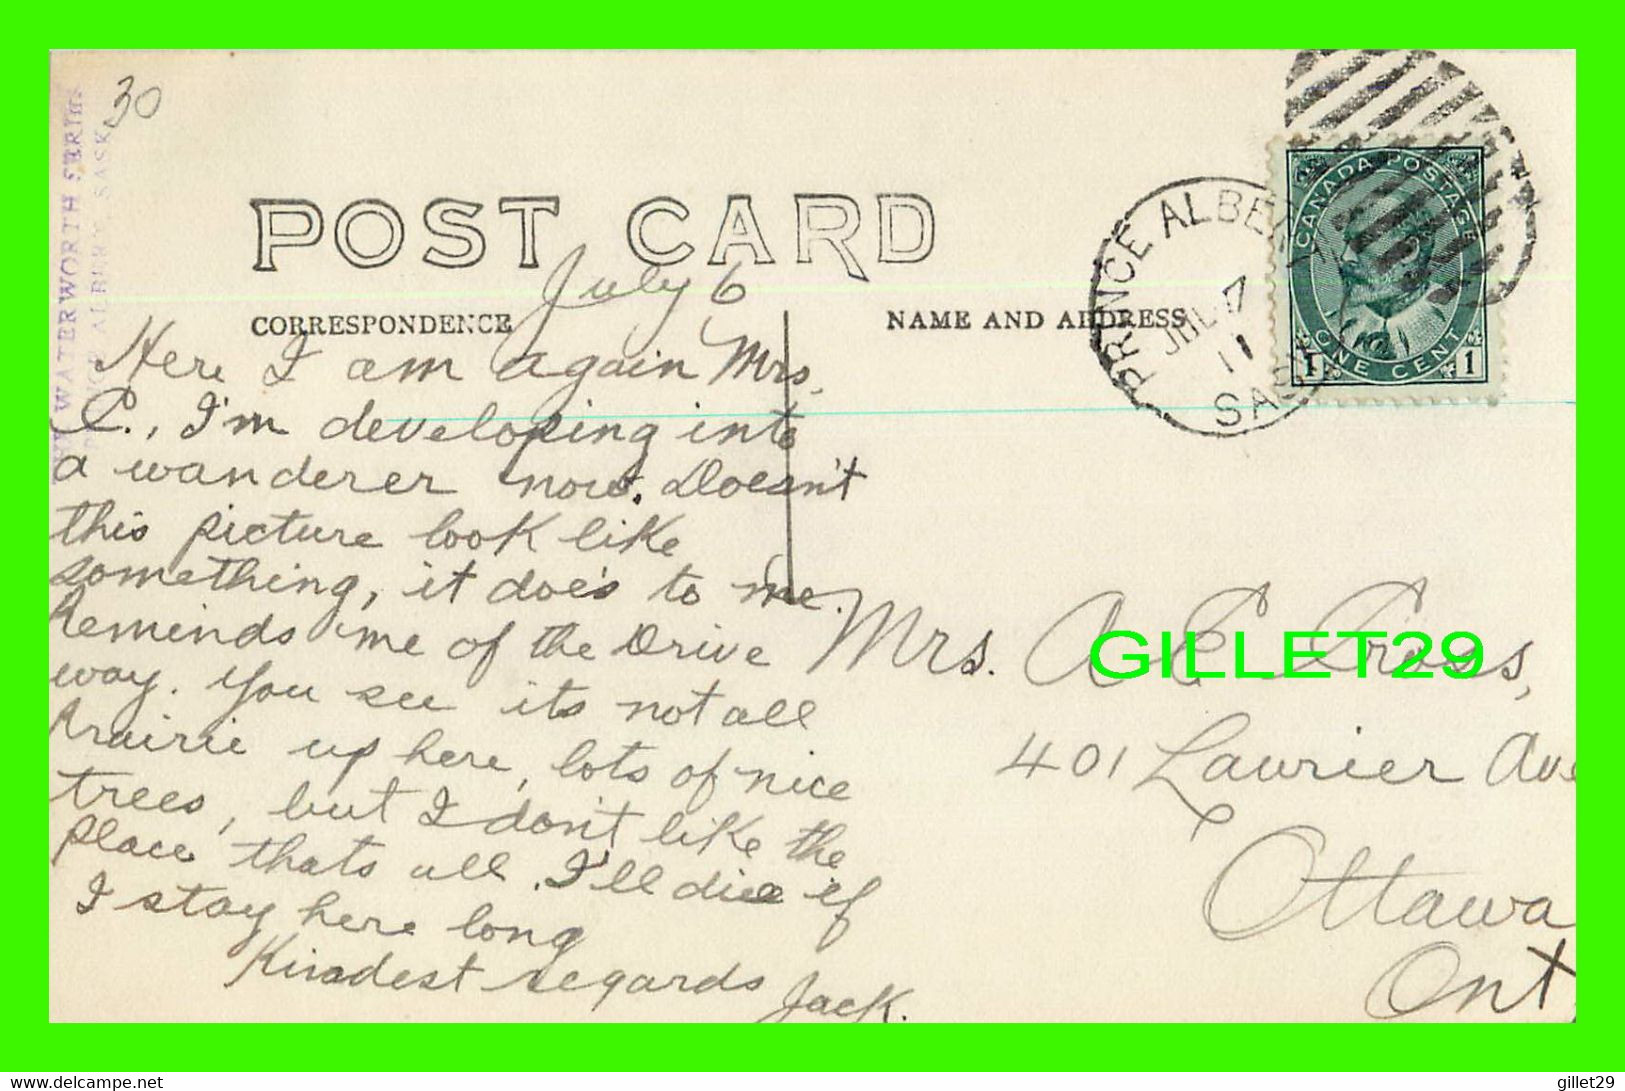 30
WATERWORTH SERIES
ALBERT, SASK
POST CARD
July 6
CORRESPONDENCE
NAME AND ADDRESS
PRINCE ALBE
JUL 7
11
SAS
CANADA POSTAGE
ONE CENT
1 1
Here I am again Mrs.
C., I'm developing into
a wanderer now. Doesn't
this picture look like
something, it does to me.
Reminds me of the Drive
way. You see its not all
Prairie up here, lots of nice
trees, but I don't like the
place thats all. I'll die if
I stay here long
Kindest regards
Jack.
Mrs. A C Cross,
401 Laurier Ave
Ottawa
Ont.
GILLET29
delcampe.net
gillet29